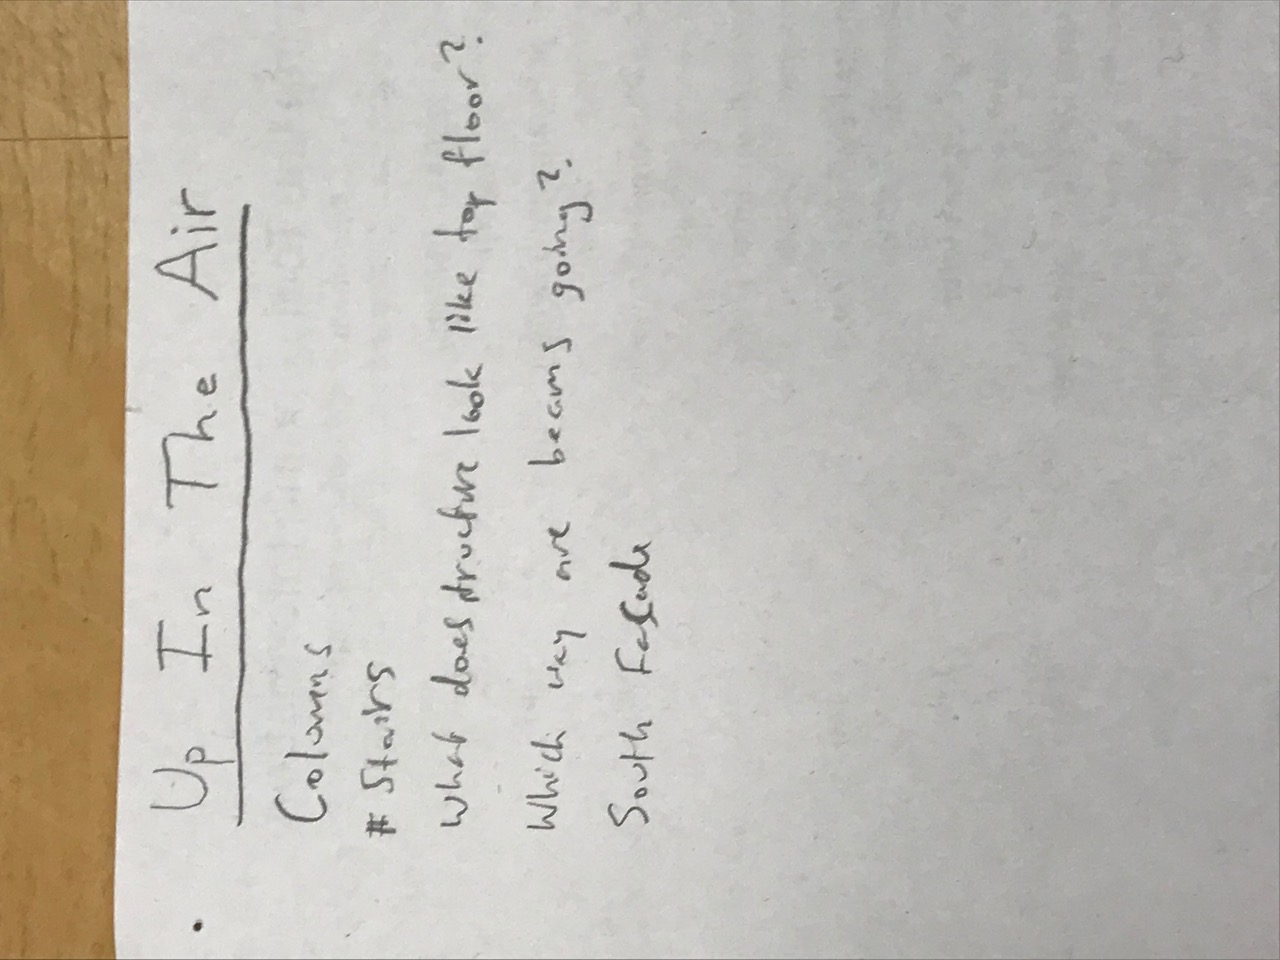 Up In The Air
Columns
# Stairs
What does structure look like top floor?
Which way are beams going?
South Facade